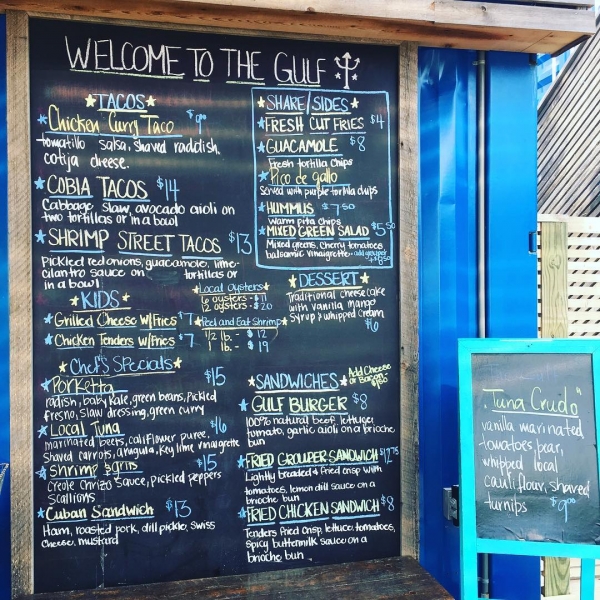 WELCOME TO THE GULF
TACOS
Chicken Curry Taco $9.00
tomatillo salsa, shaved raddish,
cotija cheese.
COBIA TACOS $14
Cabbage slaw, avocado aioli on
two tortillas or in a bowl
SHRIMP STREET TACOS $13
Pickled red onions, guacamole, lime-
cilantro sauce on tortillas or
in a bowl
KIDS
Grilled Cheese w/Fries $7
Chicken Tenders w/Fries $7
Local Oysters
6 oysters - $11
12 oysters - $20
Peel and Eat Shrimp
1/2 lb. - $12
1 lb. - $19
Chef's Specials
Porketta $15
radish, baby kale, green beans, Pickled
fresno, slaw dressing, green curry
Local Tuna $16
marinated beets, califlower puree,
Shaved carrots, arugula, Key lime vinaigrette
Shrimp & grits $15
Creole chrizo sauce, pickled peppers
Scallions
Cuban Sandwich $13
Ham, roasted pork, dill pickle, Swiss
cheese, mustard
SHARE/SIDES
FRESH CUT FRIES $4
GUACAMOLE $8
Fresh tortilla chips
Pico de gallo
served with purple tortilla chips
HUMMUS $7.50
warm pita chips
MIXED GREEN SALAD $5.50
Mixed greens, cherry tomatoes
balsamic vinaigrette
DESSERT
Traditional cheesecake
with vanilla mango
Syrup & whipped cream
$6
SANDWICHES
Add Cheese
or Bacon
$1.50
GULF BURGER $8
100% natural beef, lettuce,
tomato, garlic aioli on a brioche
bun
FRIED GROUPER SANDWICH $12.75
Lightly breaded & fried crisp with
tomatoes, lemon dill sauce on a
brioche bun
FRIED CHICKEN SANDWICH $8
Tenders fried crisp, lettuce, tomatoes,
spicy buttermilk sauce on a
brioche bun
"Tuna Crudo"
vanilla marinated
tomatoes, pear,
whipped local
cauliflour, shaved
turnips $9.00